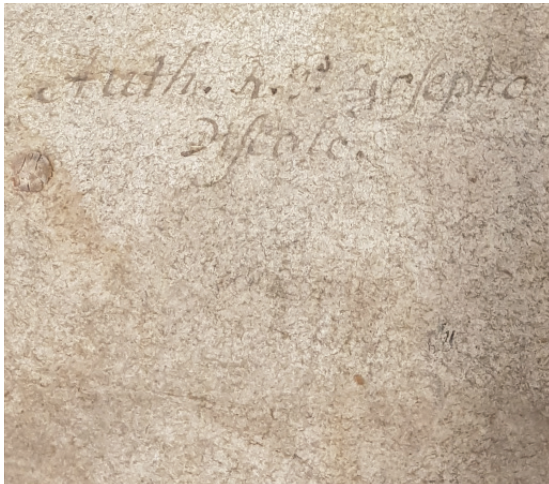 Auth. R. P. Josepho
Discolo.